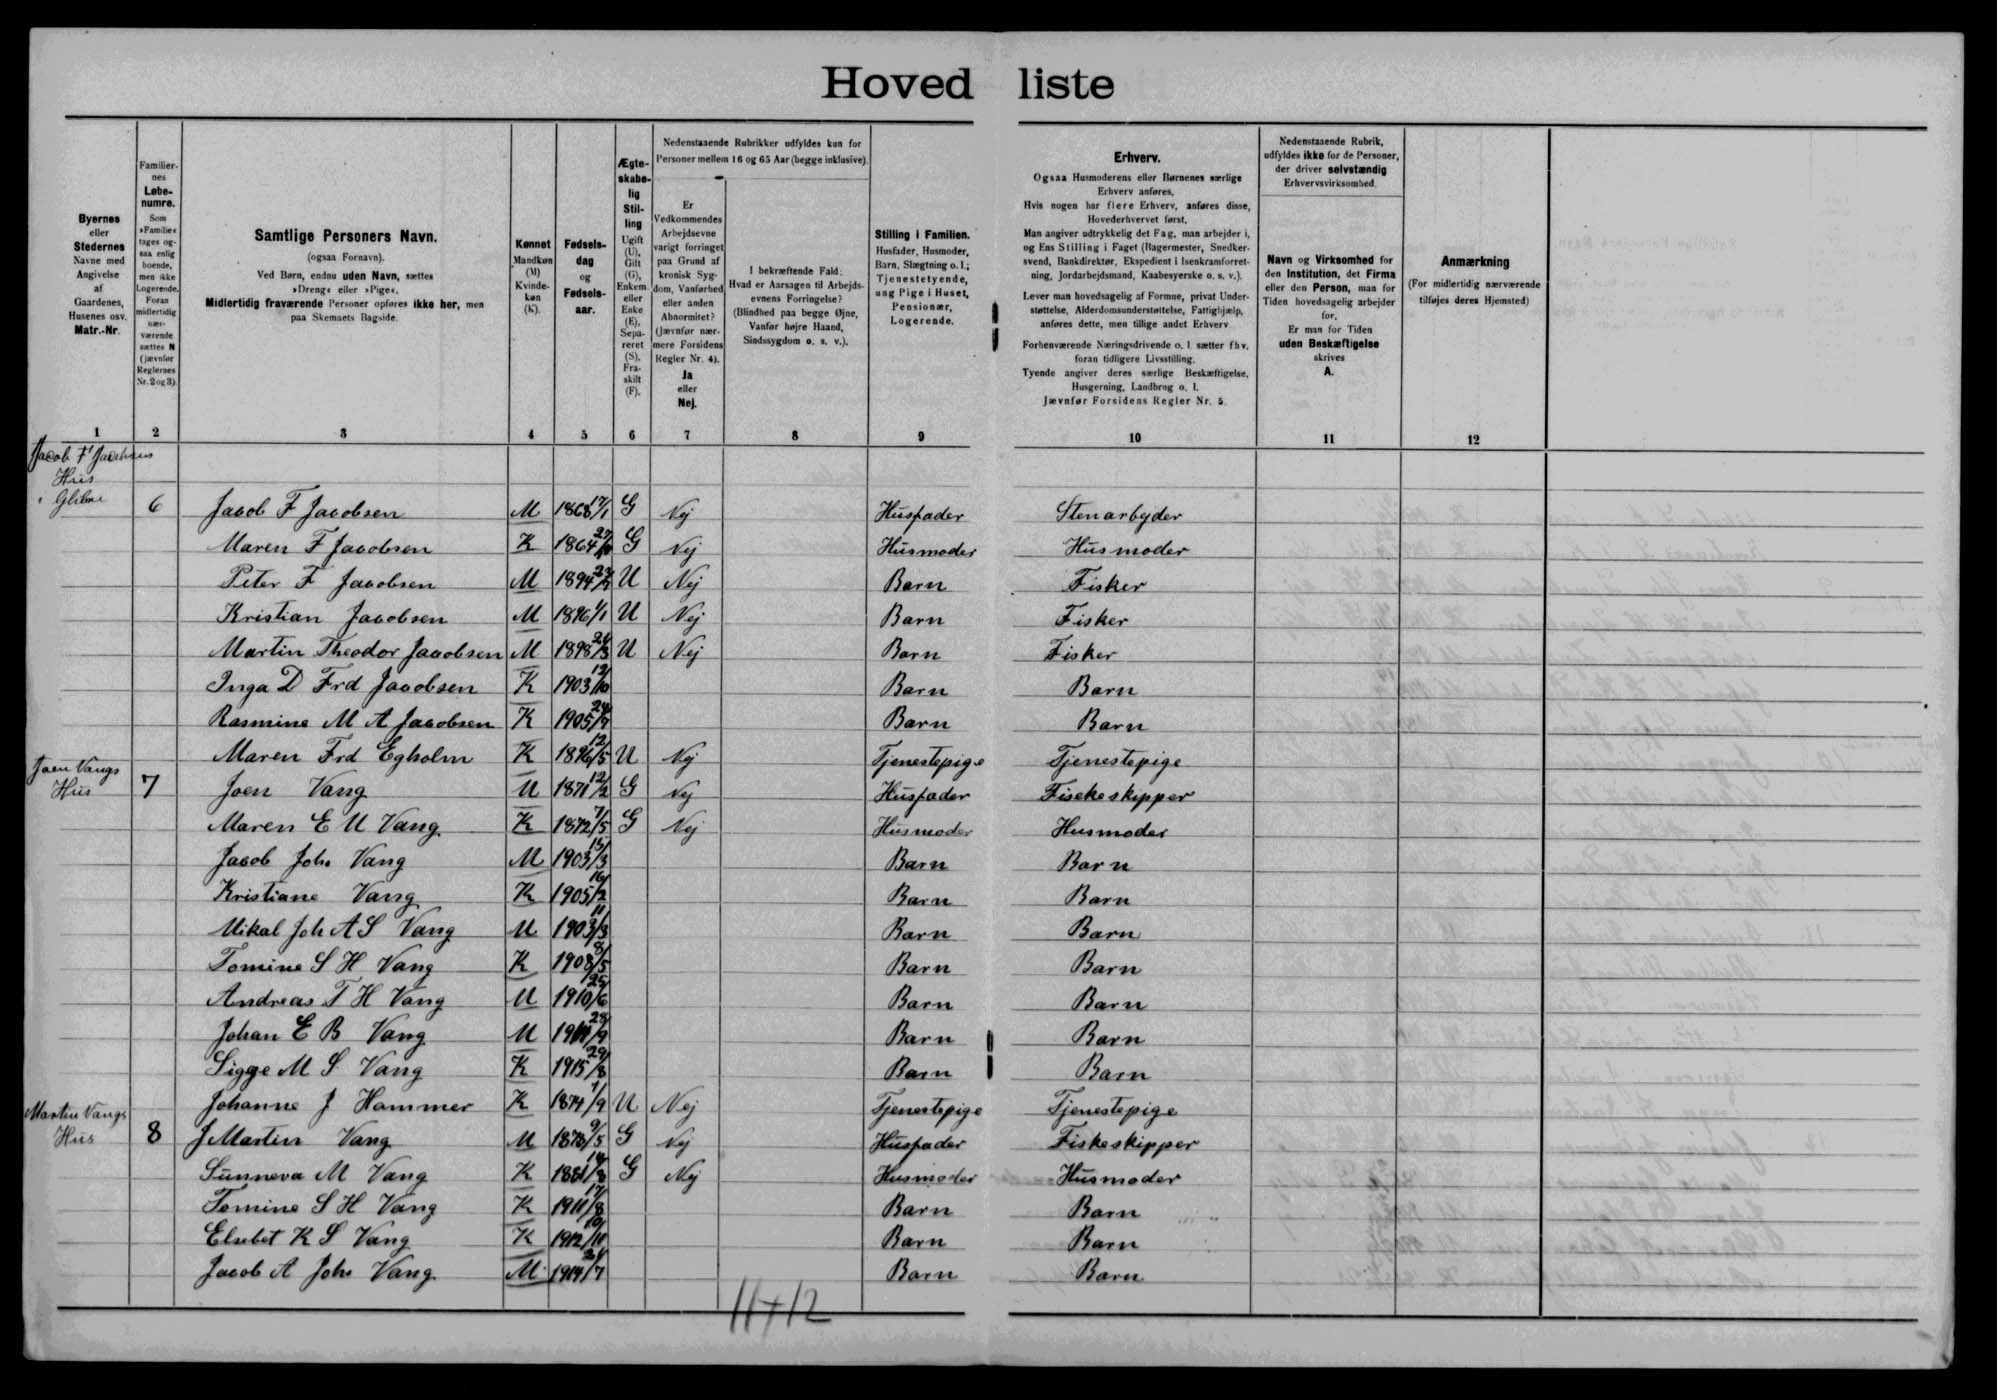 Hovedliste
Byernes eller Stedernes Navne med Angivelse af Gaardenes, Husenes osv. Matr.-Nr.
Familiernes Løbenumre. Som »Familie« tages ogsaa enlig boende, men ikke Logerende. Foran midlertidig nærværende sættes N (jævnfør Reglernes Nr. 2 og 3).
Samtlige Personers Navn. (ogsaa Fornavn). Ved Børn, endnu uden Navn, sættes »Dreng« eller »Pige«. Midlertidig fraværende Personer opføres ikke her, men paa Skemaets Bagside.
Kønnet Mandkøn (M) Kvindekøn (K).
Fødselsdag og Fødselsaar.
Ægteskabelig Stilling Ugift (U), Gift (G), Enkem. eller Enke (E), Separeret (S), Fraskilt (F).
Nedenstaaende Rubrikker udfyldes kun for Personer mellem 16 og 65 Aar (begge inklusive).
Er Vedkommendes Arbejdsevne varigt forringet paa Grund af kronisk Sygdom, Vanførhed eller anden Abnormitet? (Jævnfør nærmere Forsidens Regler Nr. 4). Ja eller Nej.
I bekræftende Fald: Hvad er Aarsagen til Arbejdsevnens Forringelse? (Blindhed paa begge Øjne, Vanfør højre Haand, Sindssygdom o. s. v.).
Stilling i Familien. Husfader, Husmoder, Barn, Slægtning o. l.; Tjenestetyende, ung Pige i Huset, Pensionær, Logerende.
Erhverv.
Ogsaa Husmoderens eller Børnenes særlige Erhverv anføres.
Hvis nogen har flere Erhverv, anføres disse, Hovederhvervet først.
Man angiver udtrykkelig det Fag, man arbejder i, og Ens Stilling i Faget (Bagermester, Snedkersvend, Bankdirektør, Ekspedient i Isenkramforretning, Jordarbejdsmand, Kaabesyerske o. s. v.).
Lever man hovedsagelig af Formue, privat Understøttelse, Alderdomsunderstøttelse, Fattighjælp, anføres dette, men tillige andet Erhverv
Forhenværende Næringsdrivende o. l. sætter fhv. foran tidligere Livsstilling.
Tyende angiver deres særlige Beskæftigelse, Husgerning, Landbrug o. l.
Jævnfør Forsidens Regler Nr. 5.
Nedenstaaende Rubrik, udfyldes ikke for de Personer, der driver selvstændig Erhvervsvirksomhed.
Navn og Virksomhed for den Institution, det Firma eller den Person, man for Tiden hovedsagelig arbejder for.
Er man for Tiden uden Beskæftigelse skrives A.
Anmærkning (For midlertidig nærværende tilføjes deres Hjemsted)
1 2 3 4 5 6 7 8 9 10 11 12
Jacob F Jacobsens
Hus
i
6 Jacob F Jacobsen M 1868 17/1 G Nej Husfader Stenarbyder
Maren F Jacobsen K 1864 G Nej Husmoder Husmoder
Peter F Jacobsen M 1894 U Nej Barn Fisker
Kristian Jacobsen M 1896 1/1 U Nej Barn Fisker
Martin Theodor Jacobsen M 1898 24/3 U Nej Barn Fisker
Inga D Frd Jacobsen K 1903 12/10 Barn Barn
Rasmine M A Jacobsen K 1905 Barn Barn
Maren Frd Egholm K 1896 12/5 U Nej Tjenestepige Tjenestepige
Joen Vangs
Hus 7 Joen Vang M 1871 12/2 G Nej Husfader Fisekeskipper
Maren E M Vang K 1872 7/5 G Nej Husmoder Husmoder
Jacob Johs Vang M 1903 15/3 Barn Barn
Kristiane Vang K 1905 16/2 Barn Barn
Mikal Joh A S Vang M 1903 11/3 Barn Barn
Tomine S H Vang K 1908 8/5 Barn Barn
Andreas T H Vang M 1910 25/6 Barn Barn
Johan E B Vang M 1911 28/9 Barn Barn
Sigge M S Vang K 1915 29/8 Barn Barn
Johanne J Hammer K 1874 1/9 U Nej Tjenestepige Tjenestepige
Martin Vangs
Hus 8 J Martin Vang M 1873 9/5 G Nej Husfader Fiskeskipper
Sunneva M Vang K 1881 14/8 G Nej Husmoder Husmoder
Tomine S H Vang K 1911 17/8 Barn Barn
Elsebet K S Vang K 1912 10/11 Barn Barn
Jacob A Johs Vang M 1914 21/7 Barn Barn
11+12